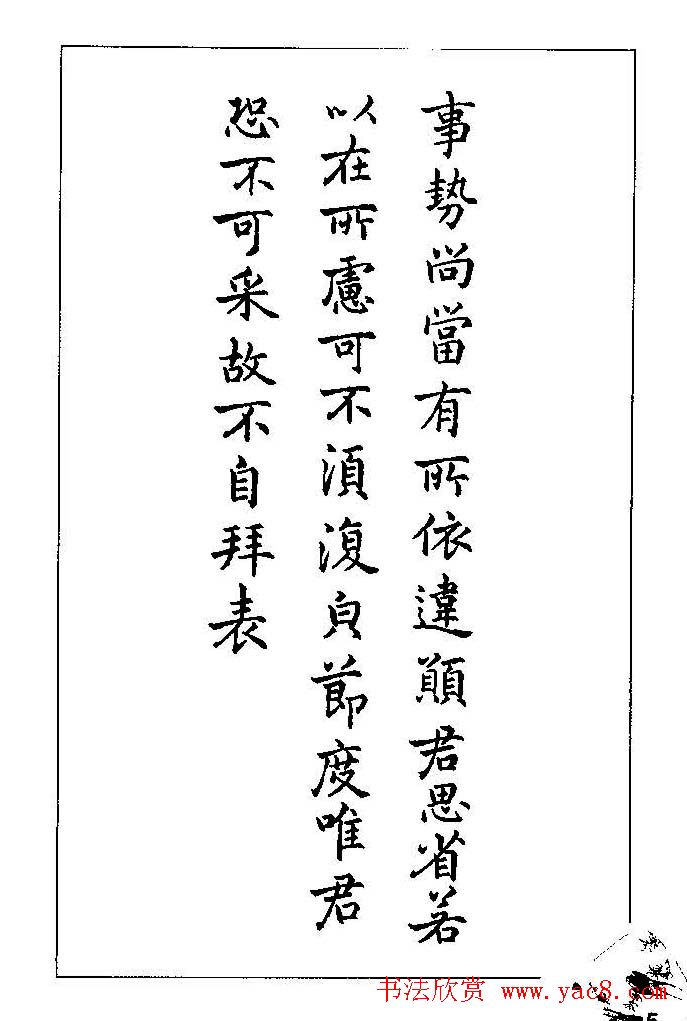 事勢尚當有所依違願君思省若
以在所慮可不須復節度唯君
恐不可采故不自拜表
书法欣赏 www.yac8.com
5